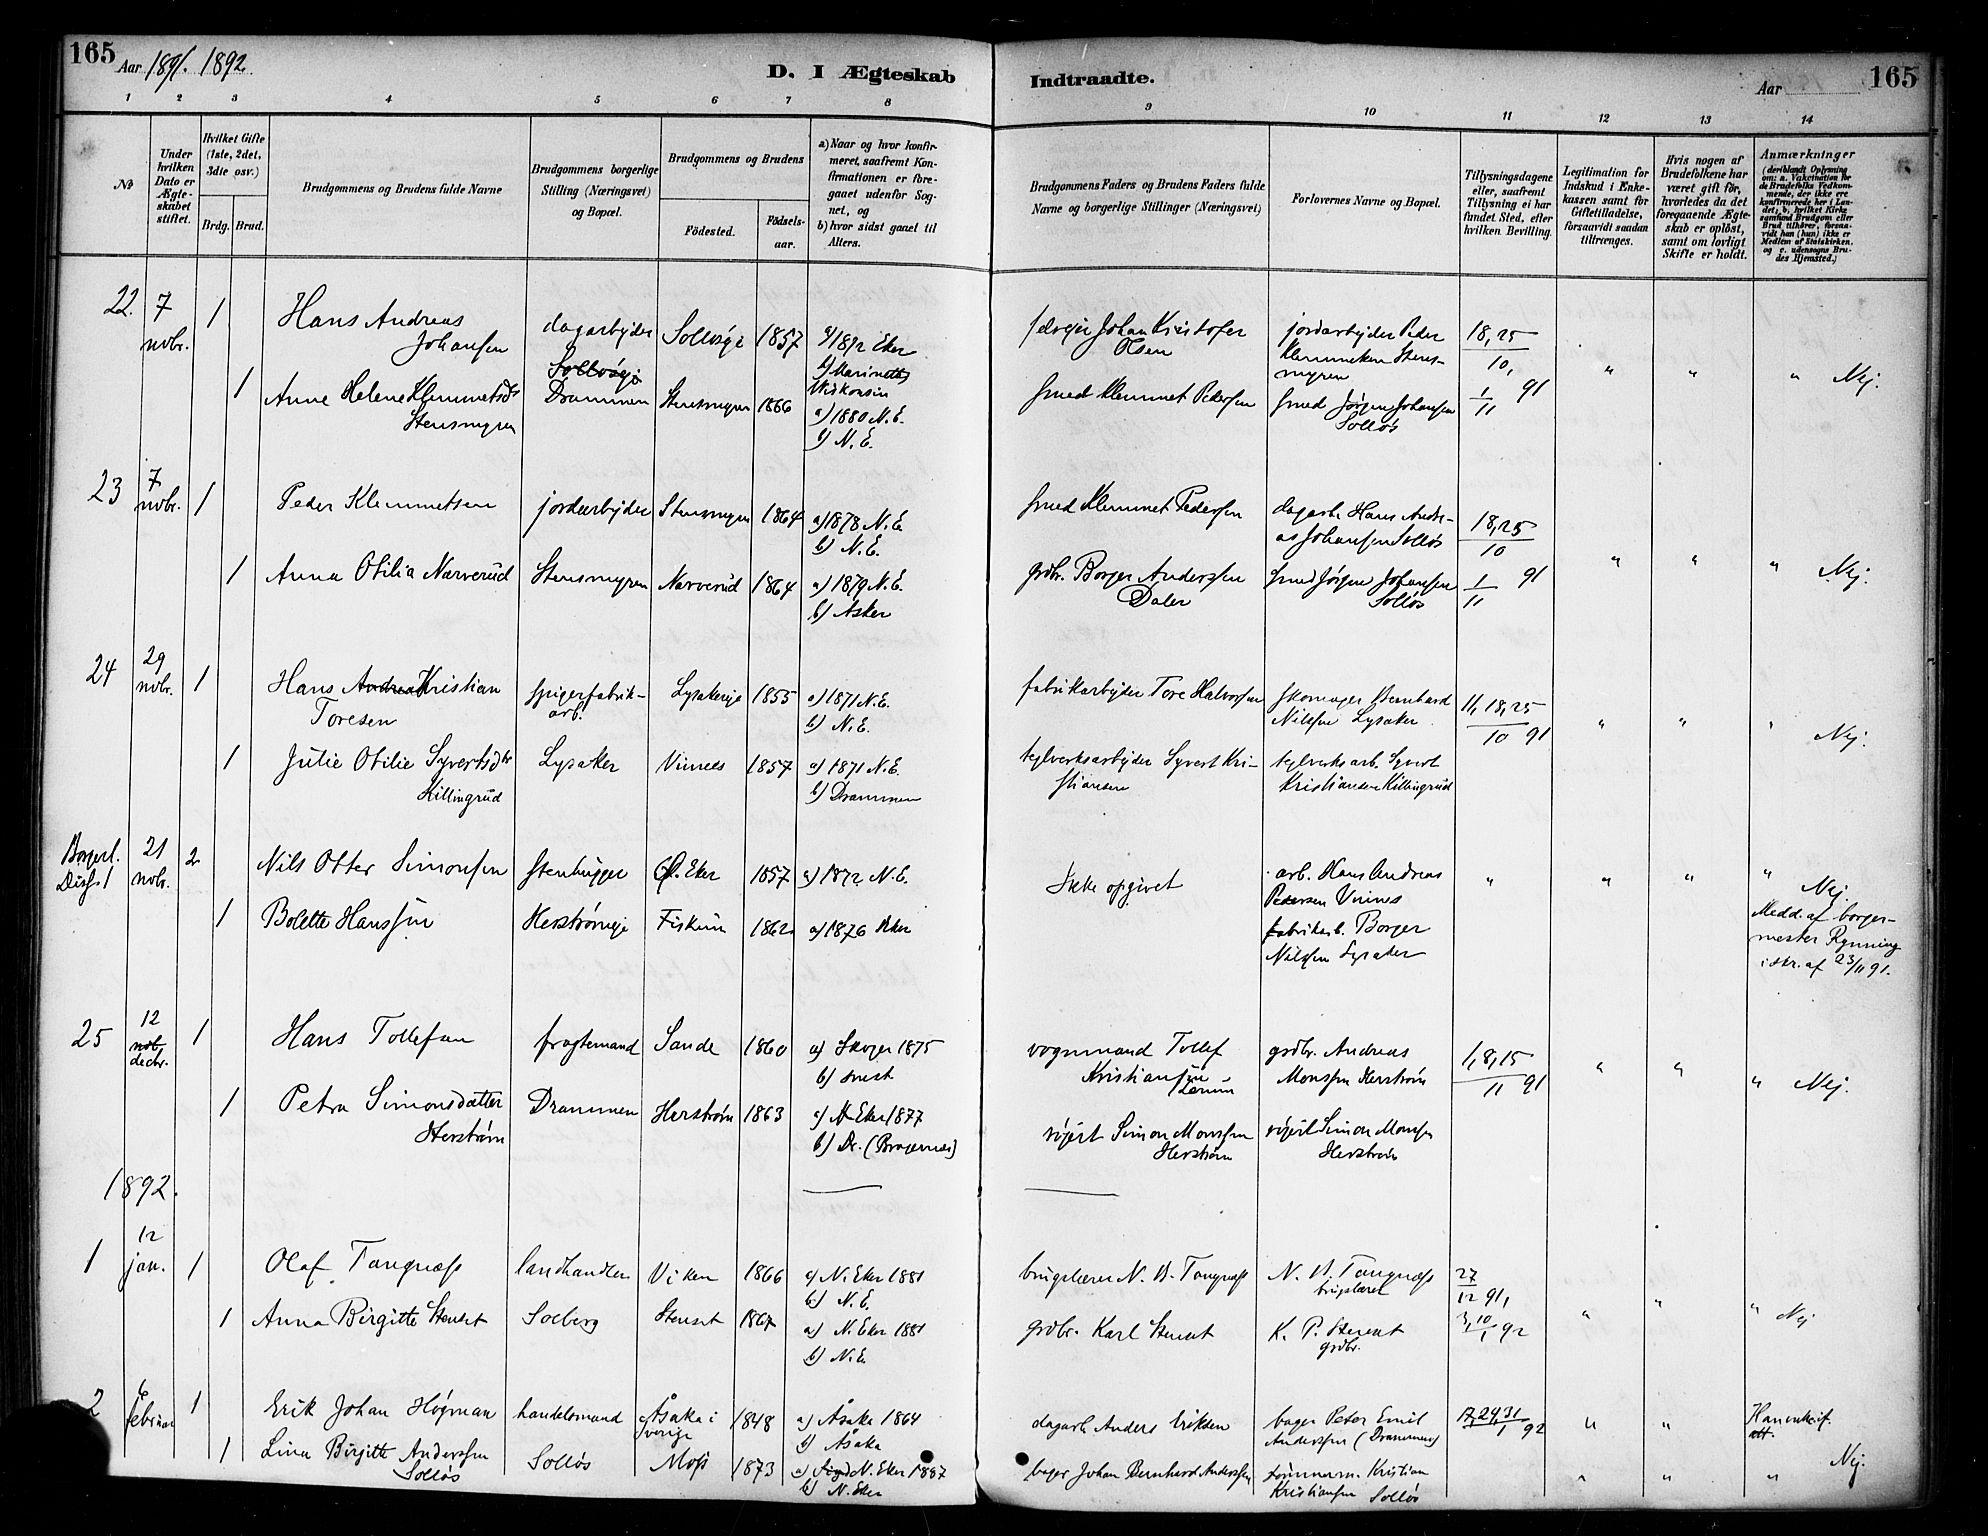 165
Aar 1891. 1892.
D. I Ægteskab Indtraadte.
Aar
165
1 2 3 4 5 6 7 8 9 10 11 12 13 14
No
Under hvilken Dato er Ægteskabet stiftet.
Hvilket Gifte (1ste, 2det, 3die osv.)
Brdg. Brud.
Brudgommens og Brudens fulde Navne
Brudgommens borgerlige Stilling (Næringsvei) og Bopæl.
Brudgommens og Brudens
Fødested.
Fødselsaar.
a) Naar og hvor konfirmeret, saafremt Konfirmationen er foregaaet udenfor Sognet, og
b) hvor sidst gaaet til Alters.
Brudgommens Faders og Brudens Faders fulde Navne og borgerlige Stillinger (Næringsvei)
Forlovernes Navne og Bopæl.
Tillysningsdagene eller, saafremt Tillysning ei har fundet Sted, efter hvilken Bevilling.
Legitimation for Indskud i Enkekassen samt for Giftetilladelse, forsaavidt saadan tiltrænges.
Hvis nogen af Brudefolkene har været gift før, hvorledes da det foregaaende Ægteskab er opløst, samt om lovligt Skifte er holdt.
Anmærkninger
(deriblandt Oplysning om: a. Vakcination for de Brudefolks Vedkommende, der ikke ere konfirmerede her i Landet; b, hvilket Kirkesamfund Brudgom eller Brud tilhører, forsaavidt han (hun) ikke er Medlem af Statskirken, og c. udensogns Brudes Hjemsted.)
22. 7 novbr. 1 Hans Andreas Johansen
dagarbejder Solløseje Drammen
Solløseje 1857
a) 1872 Eker
b) Marinette Viskonsin
Johan Kristofer Olsen
jordarbejder Peder Klemmetsen Stensmyren
18, 25/10, 1/11 91
" " " Nej.
1 Anne Helene Klemmetsdr Stensmyren
Stensmyren 1866
a) 1880 N. E.
b) N. E.
smed Klemmet Pedersen
smed Jørgen Johansen Solløs
23 7 novbr. 1 Peder Klemmetsen
jordarbejder Stensmyren
Stensmyren 1864
a) 1878 N. E.
b) N. E.
smed Klemmet Pedersen
dagarb. Hans Andreas Johansen Solløs
18, 25/10 1/11 91
" " " Nej.
1 Anna Otilia Narverud
Narverud 1864
a) 1879 N. E.
b) Asker
grdbr. Borger Anderssen Daler
smed Jørgen Johansen Solløs
24 29 novbr. 1 Hans Andreas Kristian Toresen
spigerfabrikarb. Lysaker
Lysakereje 1855
a) 1871 N. E.
b) N. E.
fabrikarbejder Tore Halvorsen
skomager Bernhard Nilssen Lysaker
11, 18, 25/10 91
" " " Nej.
1 Julie Otilie Syvertsdtr Killingrud
Vinnes 1857
a) 1871 N. E.
b) Drammen
teglverksarbejder Syvert Kristiansen
teglverksarb. Syvert Kristiansen Killingrud
Borgerl. Diss. 1 21 novbr. 2 Nils Otter Simonsen
stenhugger Herstrømeje
Ø. Eker 1857
a) 1872 N. E.
Ikke opgivet
arb. Hans Andreas Pedersen Vinnes
" " " " Nej.
1 Bolette Hanssen
Fiskum 1862
a) 1876 Eker
fabrikarb. Borger Nilssen Lysaker
Medd. af borgermester Rynning i skr. af 23/11 91.
25 12 novb. decbr. 1 Hans Tollefsen
fragtemand Drammen
Sande 1860
a) Skoger 1875
b) snest
vognmand Tollef Kristiansen Lerum
grdbr. Andreas Monssen Herstrøm
1, 8, 15/11 91
" " " Nej.
1 Petra Simonsdatter Herstrøm
Herstrøm 1863
a) N. Eker 1877
b) Dr. (Bragernes)
Simon Monssen Herstrøm
Simon Monssen Herstrøm
1892.
1 12 jan. 1 Olaf Tangnæss
landhandler Solberg
Viken 1866
a) N. Eker 1881
b) N. E.
brugslærer N. B. Tangnæss
N. B. Tangnæss brugslærer
27/12 91, 3, 10/1 92
" " " Nej
1 Anna Birgitte Stenset
Stenset 1867
a) N. Eker 1881
b) N. E.
grdbr. Karl Stenset
K. P. Stenset grdbr.
2 6 februar 1 Erik Johan Høgman
handelsmand Solløs
Åsaka i Sverige 1848
a) Åsaka 1864
b) Åsaka
dagarb. Anders Eriksen
bager Peter Emil Anderssen (Drammen)
17, 24, 31/1 92
" "
1 Lina Birgitte Anderssen Solløs
Moss 1873
a) N. Eker 1887
b) N. Eker
bager Johan Bernhard Anderssen
tømmerm. Kristian Kristiansen Solløs
" " " Nej.